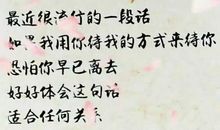 最近很流行的一段话
如果我用你待我的方式来待你
恐怕你早已离去
好好体会这句话
适合任何关系